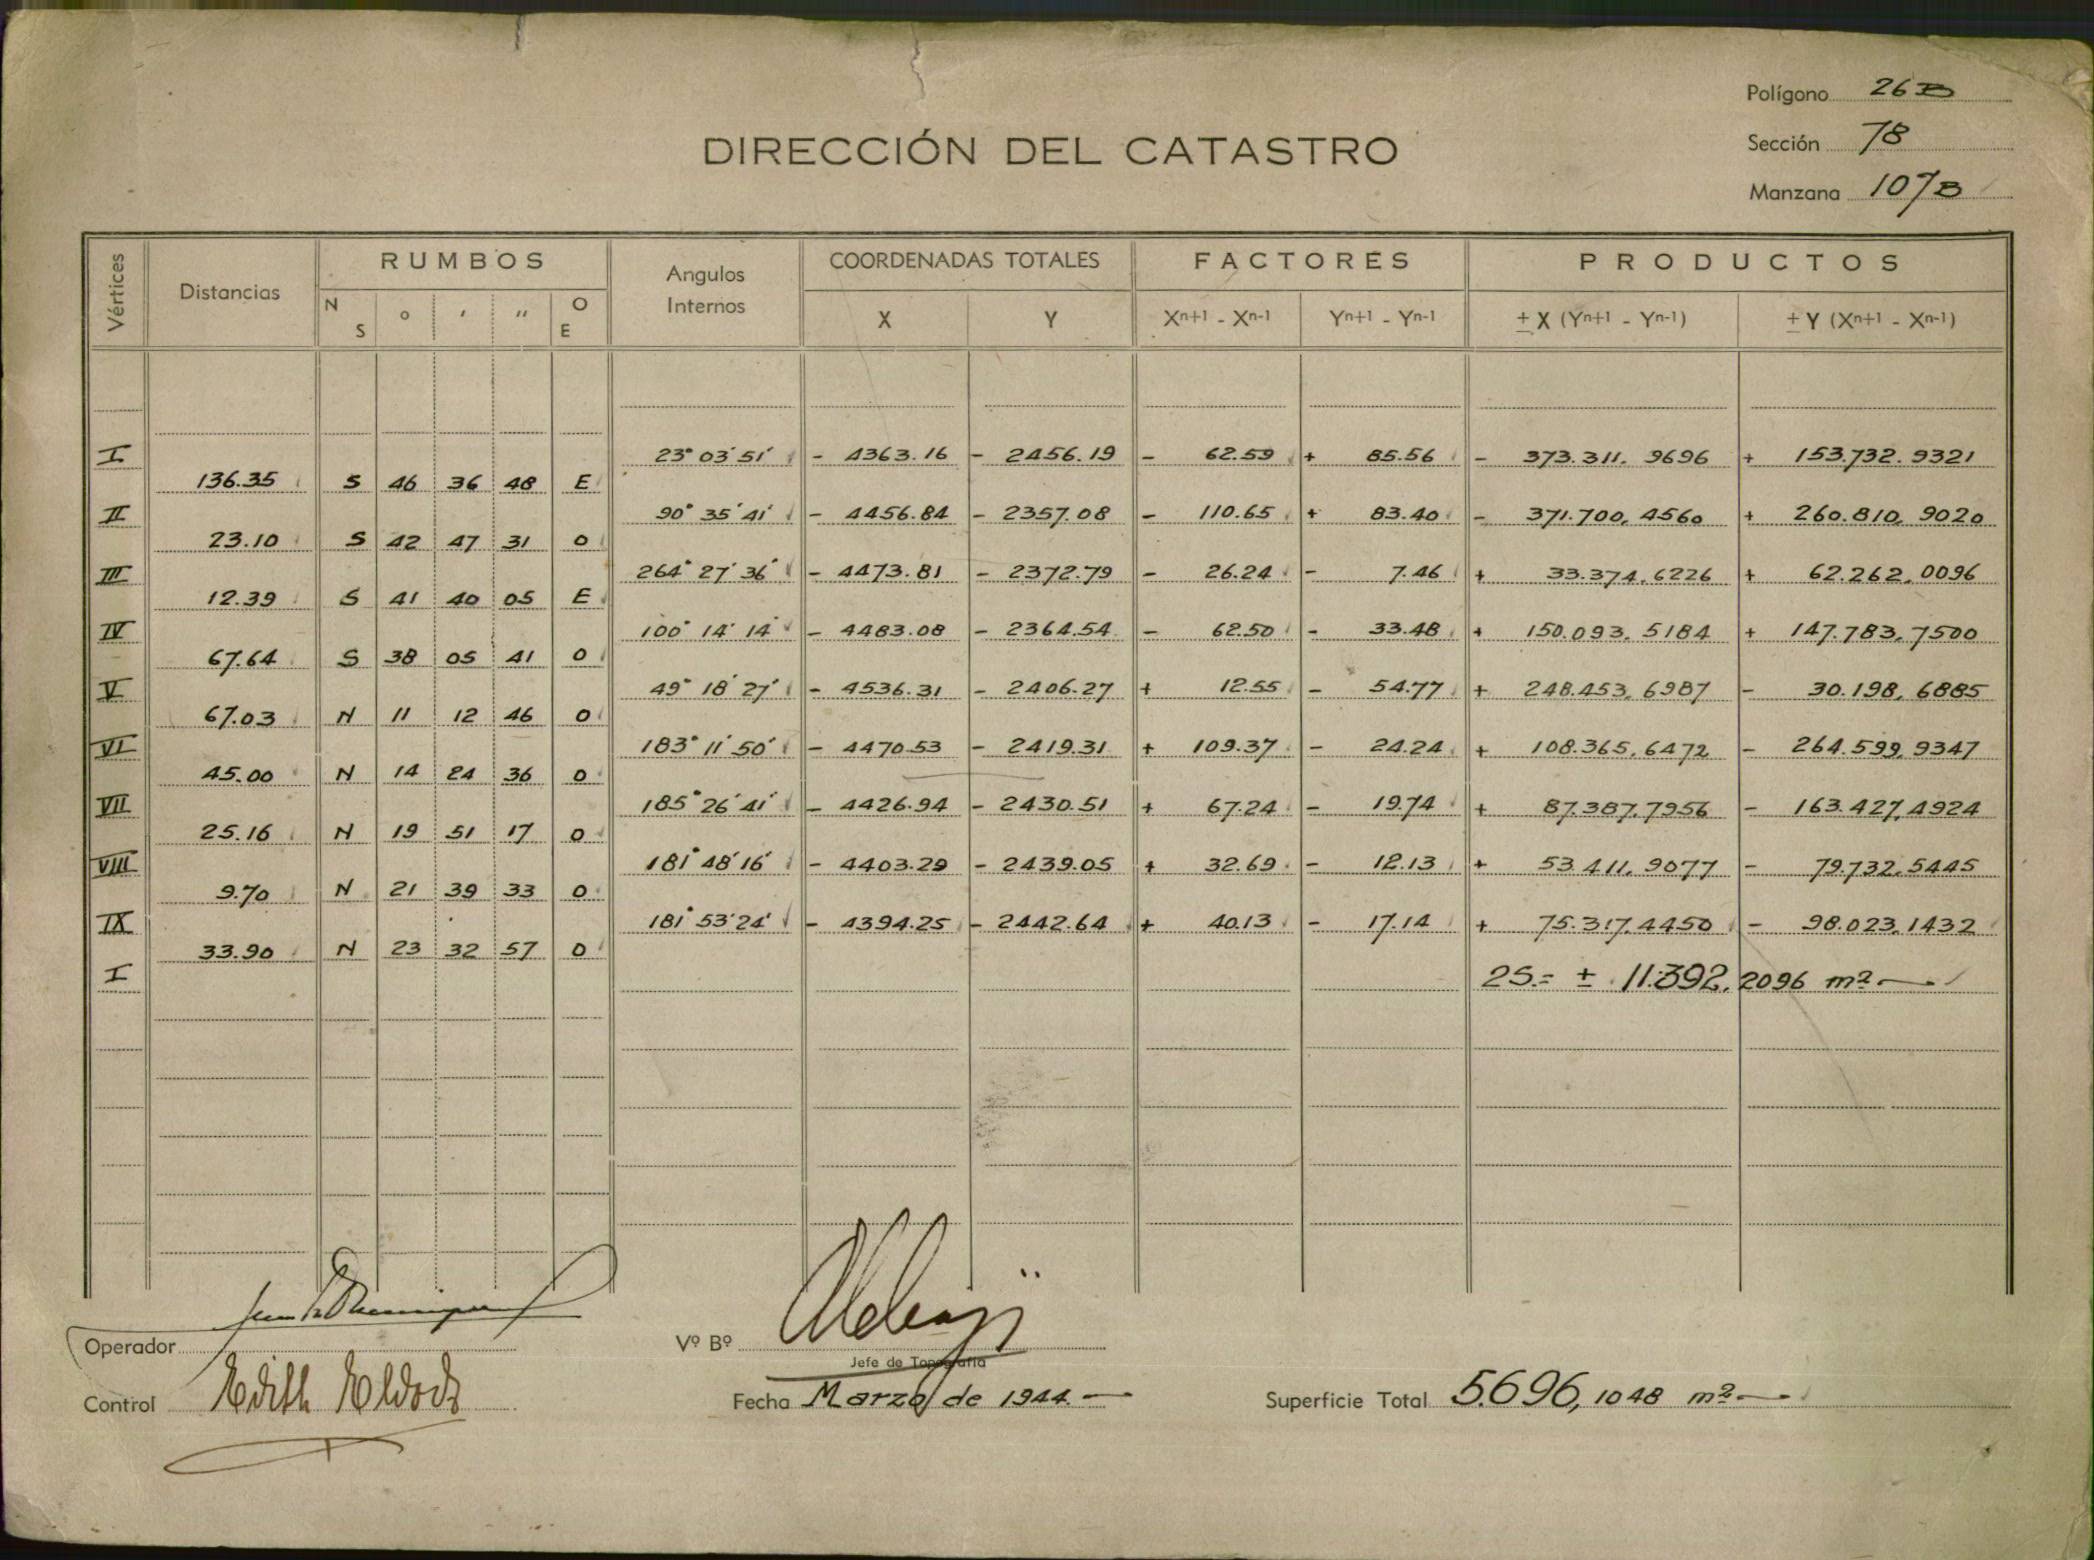 Polígono 26B
DIRECCIÓN DEL CATASTRO
Sección 78
Manzana 107B
Vértices Distancias RUMBOS Angulos Internos COORDENADAS TOTALES FACTORES PRODUCTOS
N S ° ′ ″ O E X Y Xn+1 - Xn-1 Yn+1 - Yn-1 ± X (Yn+1 - Yn-1) ± Y (Xn+1 - Xn-1)
I 23° 03′ 51′ - 4363.16 - 2456.19 - 62.59 + 85.56 - 373.311.9696 + 153.732.9321
136.35 S 46 36 48 E
II 90° 35′ 41′ - 4456.84 - 2357.08 - 110.65 + 83.40 - 371.700,4560 + 260.810,9020
23.10 S 42 47 31 O
III 264° 27′ 36″ - 4473.81 - 2372.79 - 26.24 - 7.46 + 33.374,6226 + 62.262,0096
12.39 S 41 40 05 E
IV 100° 14′ 14″ - 4483.08 - 2364.54 - 62.50 - 33.48 + 150.093,5184 + 147.783,7500
67.64 S 38 05 41 O
V 49° 18′ 27″ - 4536.31 - 2406.27 + 12.55 - 54.77 + 248.453,6987 - 30.198,6885
67.03 N 11 12 46 O
VI 183° 11′ 50″ - 4470.53 - 2419.31 + 109.37 - 24.24 + 108.365,6472 - 264.599,9347
45.00 N 14 24 36 O
VII 185° 26′ 41″ - 4426.94 - 2430.51 + 67.24 - 19.74 + 87.387,7956 - 163.427,4924
25.16 N 19 51 17 O
VIII 181° 48′ 16″ - 4403.29 - 2439.05 + 32.69 - 12.13 + 53.411,9077 - 79.732,5445
9.70 N 21 39 33 O
IX 181° 53′ 24″ - 4394.25 - 2442.64 + 40.13 - 17.14 + 75.317,4450 - 98.023,1432
33.90 N 23 32 57 O
I 2S.= ± 11.392,2096 m²
Operador
Vº Bº
Jefe de Topografía
Control Edith
Fecha Marzo de 1944.
Superficie Total 5.696,1048 m²